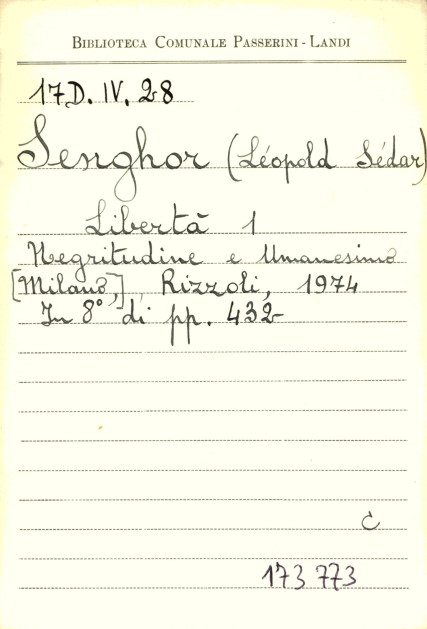 BIBLIOTECA COMUNALE PASSERINI - LANDI
17D. IV. 28
Senghor (Léopold Sédar)
Libertà 1
Negritudine e Umanesimo
[Milano,] Rizzoli, 1974
In 8° di pp. 432
C
173 773